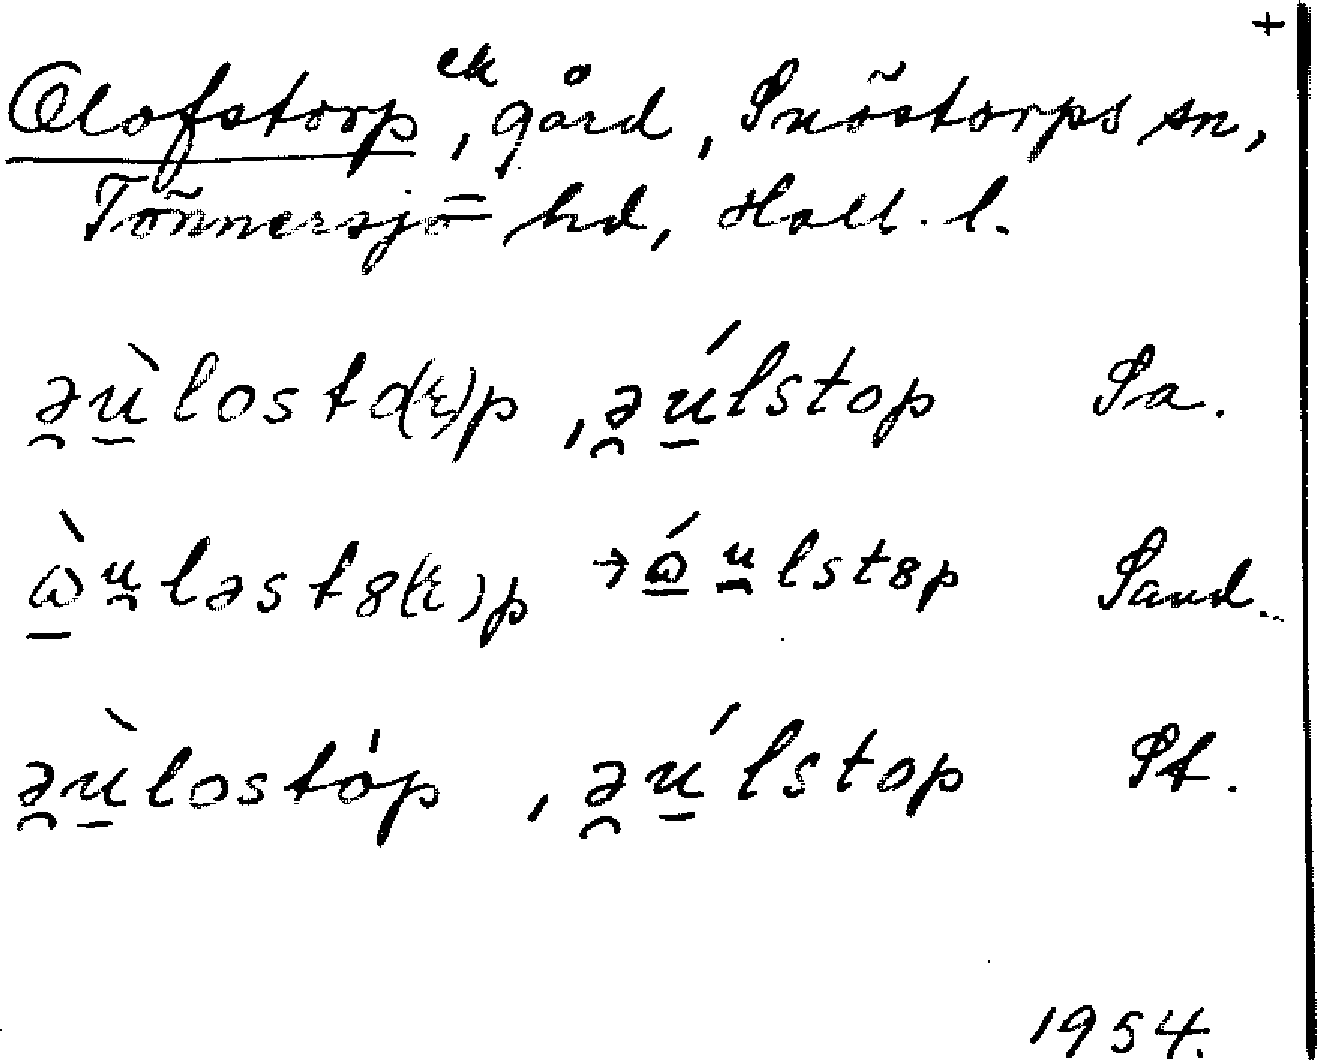 +
Olofstorp ek, gård, Snöstorps sn,
Tönnersjö hd, Hall. l.
ə̯ṳ̀lostɑ(r)p, ə̯ṳ́lstop Sa.
ɷ̀u̯ləst8(r)p → ɷ́u̯lst8p Sand.
ə̯ù̱lostóp, ə̯ú̱lstop St.
1954.